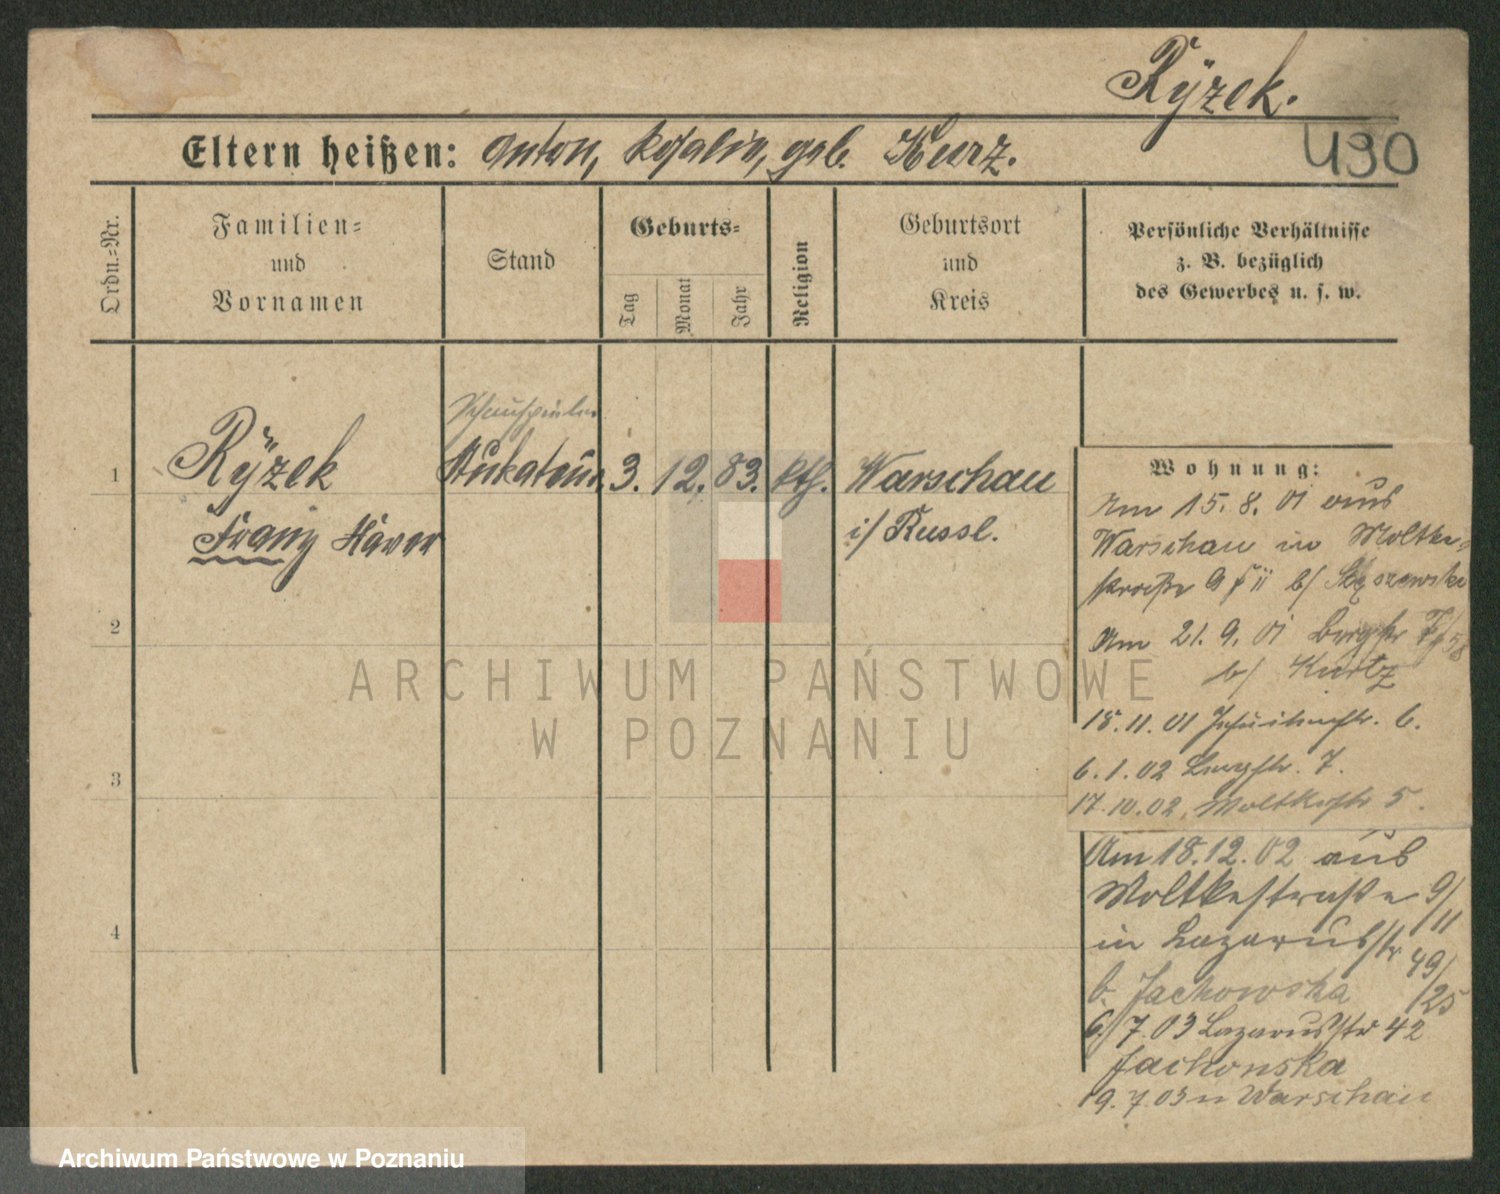 Rÿzek.
Eltern heißen: Anton, Rosalie, geb. Kurz.
430
Ordn.-Nr.
Familien-
und
Vornamen
Stand
Geburts-
Tag
Monat
Jahr
Religion
Geburtsort
und
Kreis
Persönliche Verhältnisse
z. B. bezüglich
des Gewerbes u. s. w.
Schauspieler
1 Rÿzek Stukateur. 3. 12. 83. kth. Warschau
Franz Xaver i/ Russl.
2
3
4
Wohnung:
Am 15. 8. 01 aus
Warschau in Moltke-
straße 9 II b/
Am 21. 9. 01 Bergstr
b/ Kurtz
18. 11. 01 Jesuitenstr. 6.
6. 1. 02 Bergstr. 7.
17. 10. 02. Moltkestr 5.
Am 18. 12. 02 aus
Moltkestraße 9/11
in Lazarusstr 49/25
b. Jackowska
6/7. 03 Lazarusstr 42
Jackonska
19. 7. 03 n Warschau
ARCHIWUM PAŃSTWOWE
W POZNANIU
Archiwum Państwowe w Poznaniu